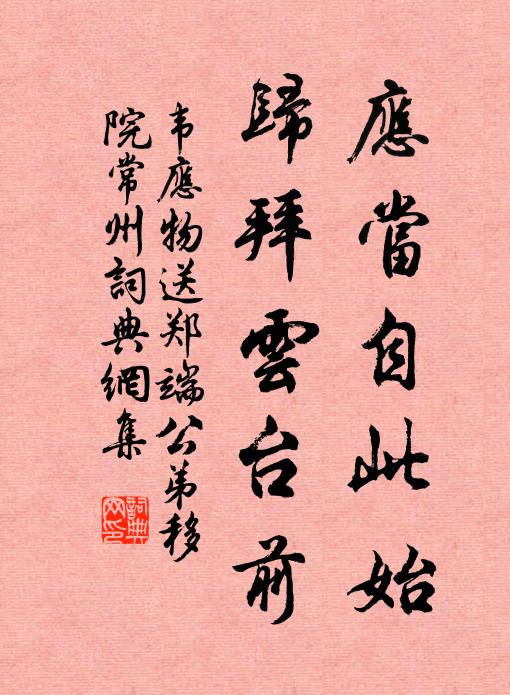 應當自此始
歸拜雲台前
韦應物送郑端公弟移
院常州詞典網集
詞典
网印